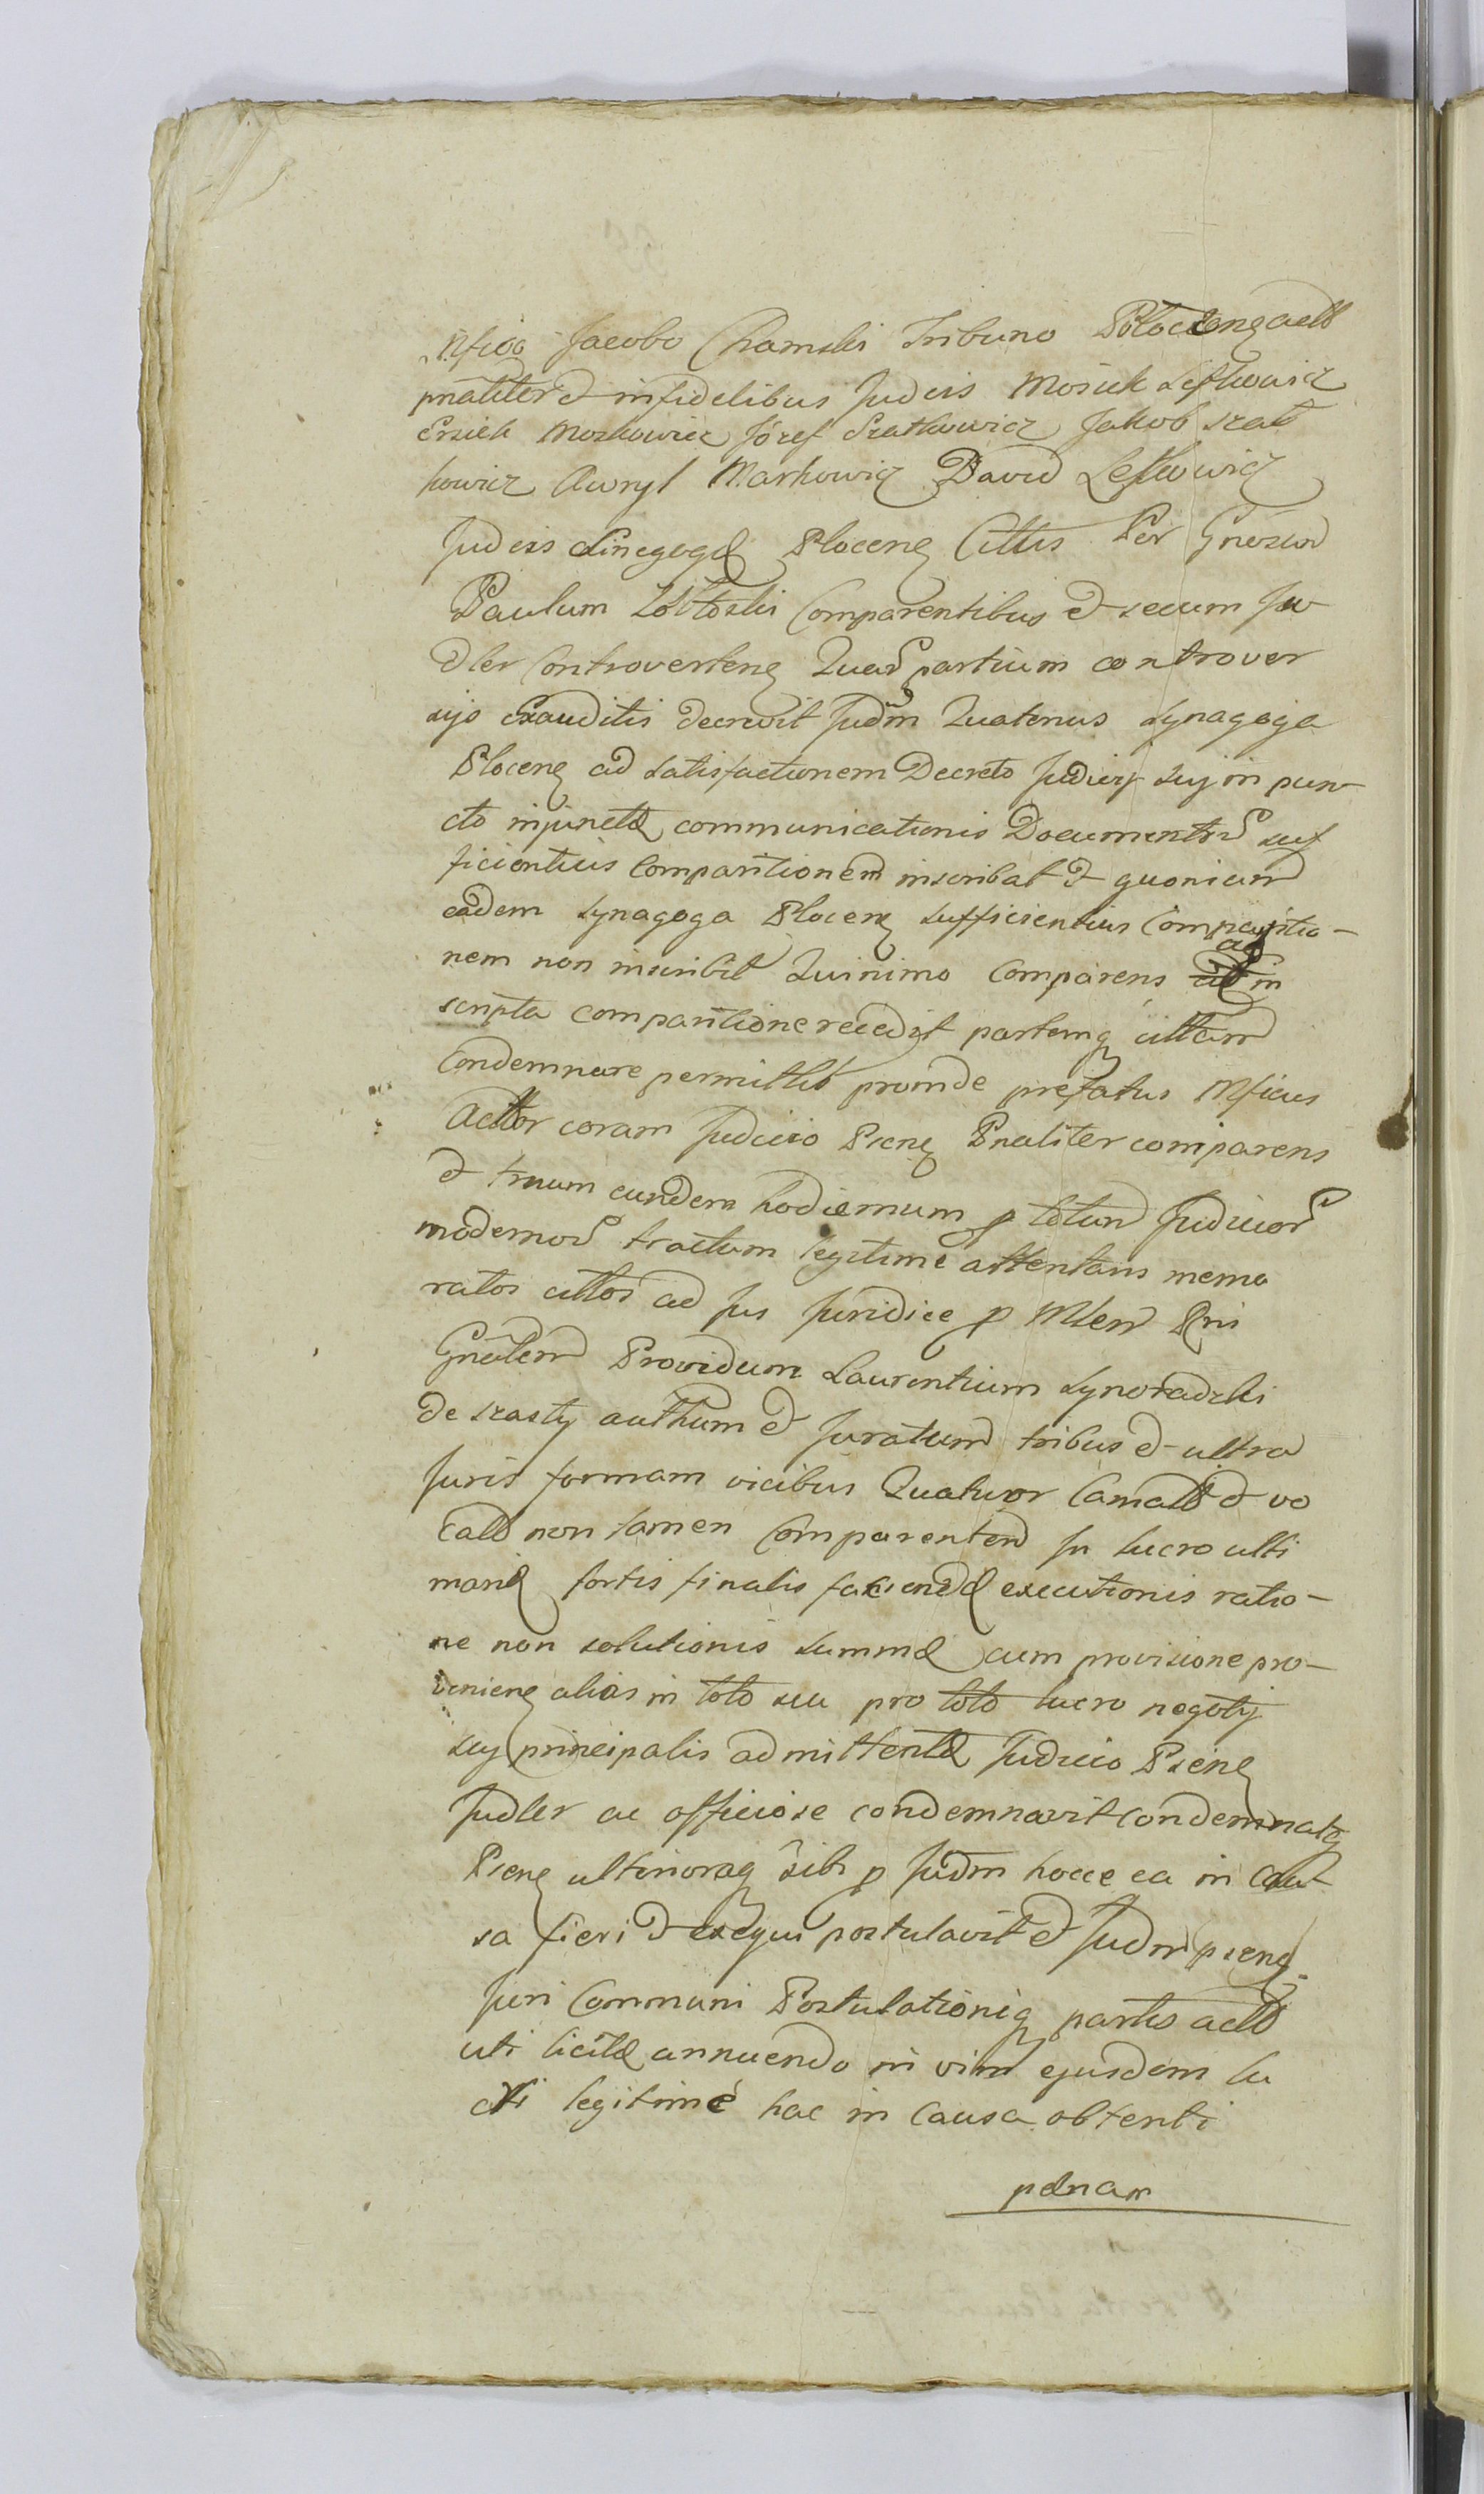 Mfico Jacobo Chamski Tribuno Plocens actt
pnaliter et infidelibus Judeis Mosiek Lefkowicz
Ersiek Moskowicz Józef Szatkowicz Jakob Szat
kowicz Awryl Markowicz David Lefkowicz
Judeis Sinegogæ Plocens Cittis Per Gnosum
Paulum Comparentibus et secum Ju
dler Controverten Quar partium controver
sijs Exauditis decrevit Judm Quatenus Synagoga
Plocens ad satisfactionem Decreto Judicij sui in pun
cto injunctæ communicationis Documentor suf
ficientius Comparitionem inscribat et quoniam
eadem Synagoga Plocens sufficientius Comparitio-
nem non inscribit Quinimo Comparens ab in
scripta comparitione recedit partemq cittam
Condemnare permittit proinde prefatus Mficus
Acttor coram Judicio Psens Pnaliter comparens
et trnum eundem hodiernum p totum Judicior
modernor tractum legitime attentans memo
ratos cittos ad Jus Juridice p Mlem Rni
Gnalem Providum Laurentium Synoradzki
de Szasty authum et Juratum tribus et ultra
Juris formam vicibus Quatuor Camatt et vo
catt non tamen Comparentem In lucro ulti
mariæ fortis finalis faciendæ executionis ratio-
ne non solutionis summæ cum provisione pro-
veniens alias in toto seu pro toto lucro negotij
sui principalis admittente Judicio Psens
Judler ac officiose condemnavit Condemnatq
Psens ulterioraq sibi p Judm hocce ea in Cau
sa fieri et exequi postulavit et Judm psens
Juri Communi Postulationiq partis actt
uti licitæ annuendo in vim ejusdem lu
cri legitimè hac in Causa obtenti
pænam